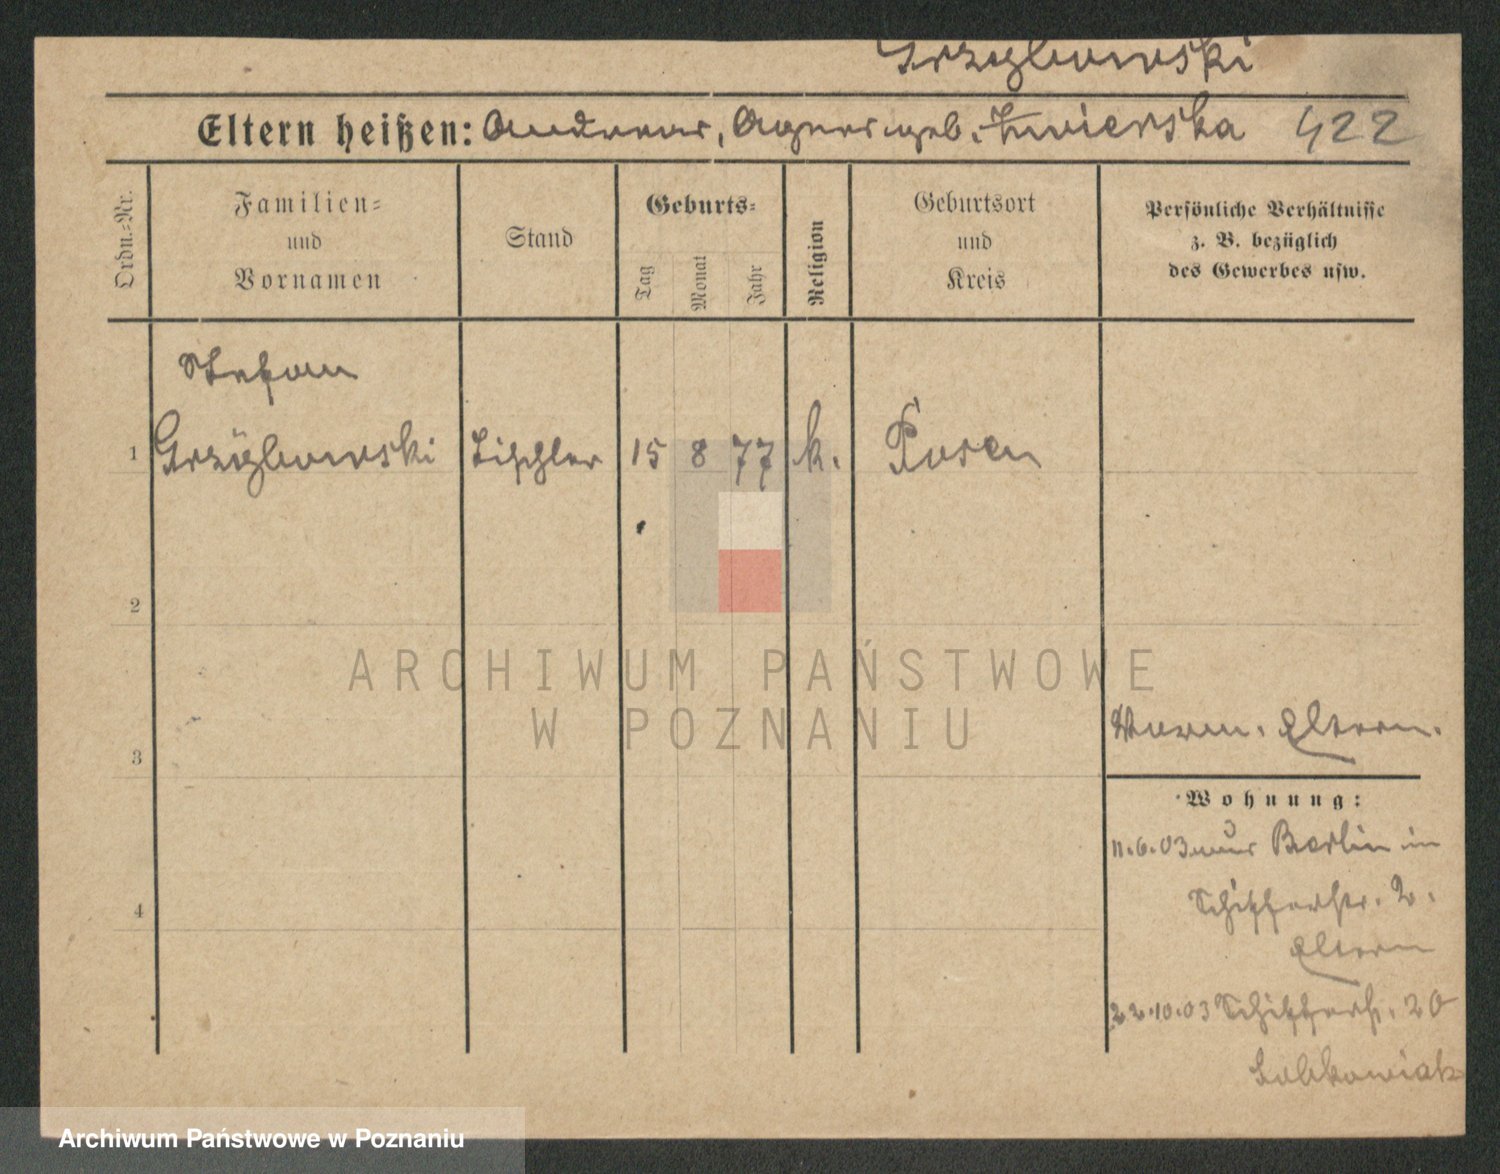 Grzeglowski
Eltern heißen: Andreas, Agnes geb. Zwierska 422
Ordn.-Nr.
Familien- und Vornamen
Stand
Geburts-
Tag
Monat
Jahr
Religion
Geburtsort und Kreis
Persönliche Verhältnisse
z. B. bezüglich
des Gewerbes usw.
Stefan
1 Grzeglowski Tischler 15 8 77 k. Posen
2
3
Eltern.
Wohnung:
11.6.03 aus Berlin in
Schifferstr. 2.
Eltern
4
22.10.03 Schifferstr. 20
ARCHIWUM PAŃSTWOWE
W POZNANIU
Archiwum Państwowe w Poznaniu